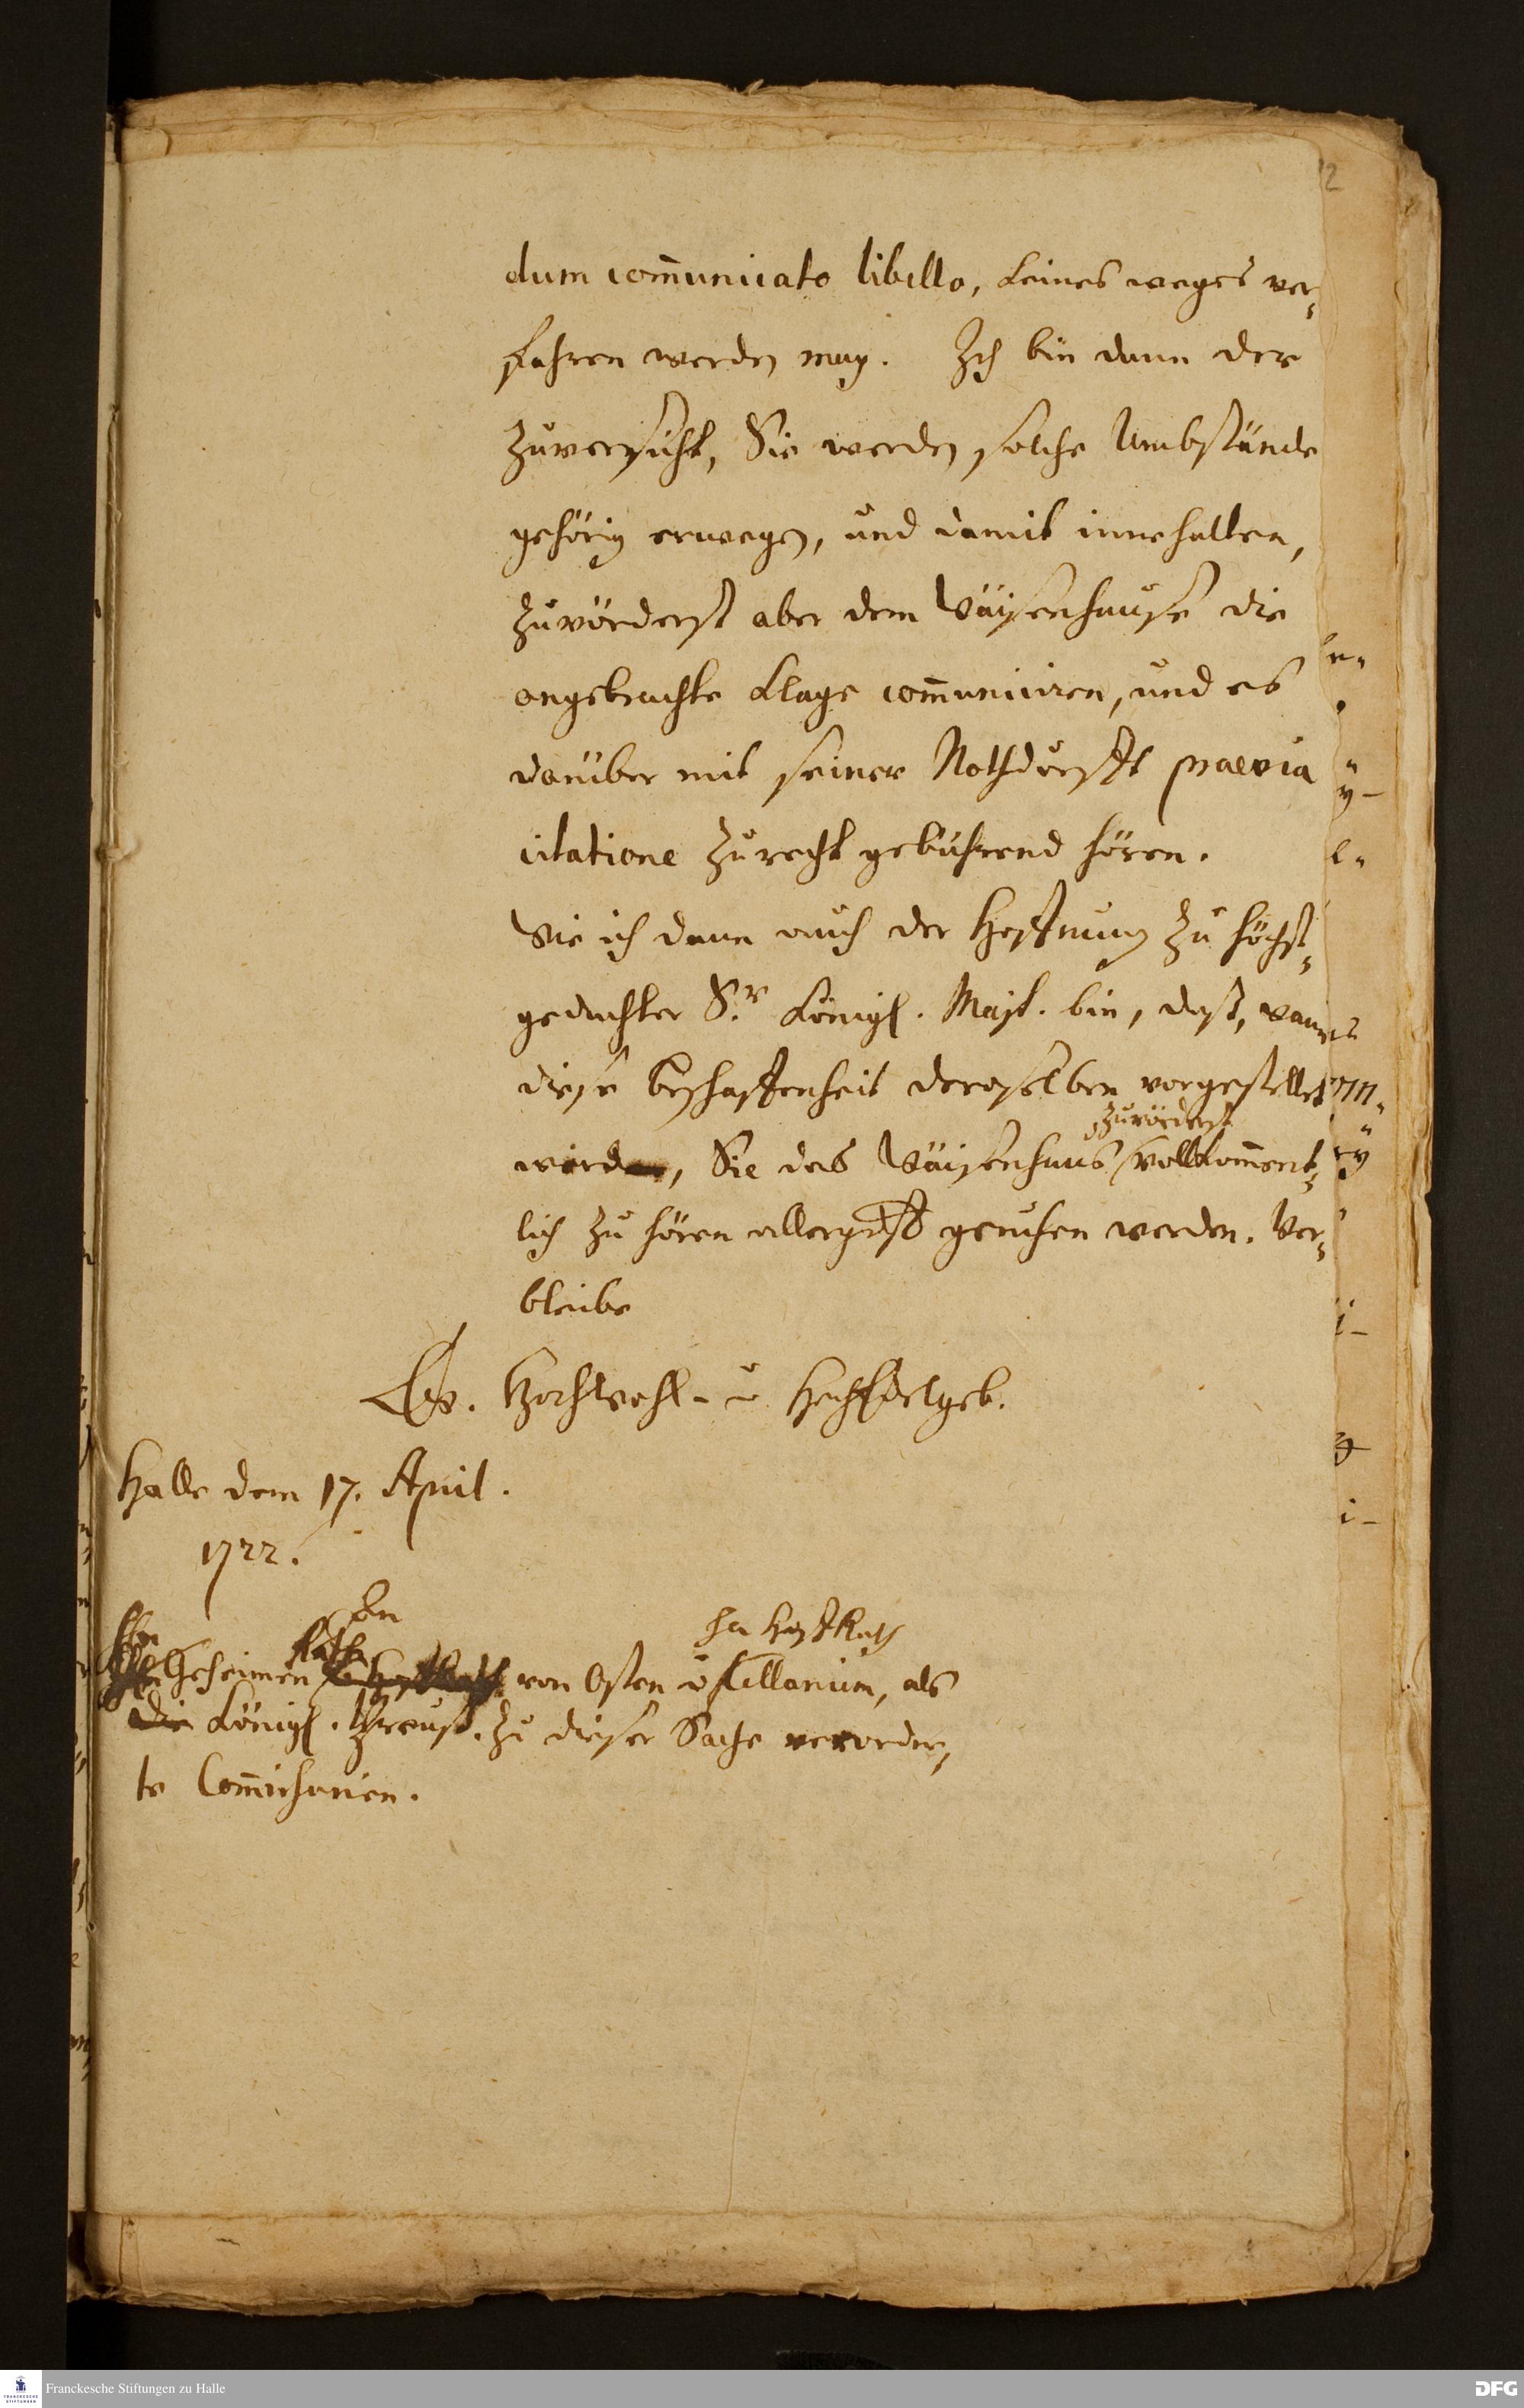 2
dum com̄unicato libello, keines weges ver-
fahren werden mag. Ich bin dann der
Zuversicht, Sie werden solche Umbstände
gehörig erwegen, und damit innehalten,
zuvörderst aber dem Wäysenhause die
angebrachte Klage com̄uniciren, und es
darüber mit seiner Nothdurfft praevia
citatione zurecht gebührend hören.
Wie ich dann auch der Hoffnung zu höchst-
gedachter S.r Königl. Majt. bin, daß, wann
diese Beschaffenheit deroselben vorgestellet
zuvörderst
wird, Sie das Wäisenhaus vollkom̄ent-
lich zu hören allergdst geruhen werden. Ver-
bleibe
Ew. Hochwohl- u. HochEdelgeb.
Halle dem 17. April.
1722.
Rath H Hoff Rath
Geheimen von Osten u Cellarium, als
die Königl. Preuß. zu dieser Sache verordne-
te Com̄issarien.
Franckesche Stiftungen zu Halle
FRANCKESCHE STIFTUNGEN
DFG